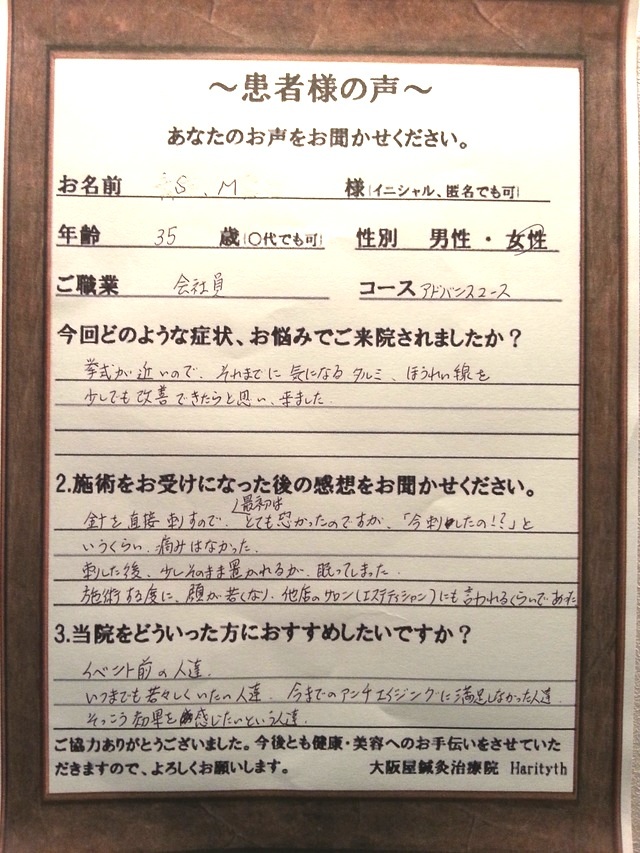 ～患者様の声～
あなたのお声をお聞かせください。
お名前 S.M 様(イニシャル、匿名でも可)
年齢 35 歳(〇代でも可) 性別 男性・女性
ご職業 会社員 コース アドバンスコース
今回どのような症状、お悩みでご来院されましたか？
挙式が近いので、それまでに気になるタルミ、ほうれい線を
少しでも改善できたらと思い、来ました。
2.施術をお受けになった後の感想をお聞かせください。
針を直接刺すので、最初はとても恐かったのですが、「今刺したの!?」と
いうくらい、痛みはなかった。
刺した後、少しそのまま置かれるが、眠ってしまった。
施術する度に、顔が若くなり、他店のサロン(エステティシャン)にも言われるくらいであった
3.当院をどういった方におすすめしたいですか？
イベント前の人達。
いつまでも若々しくいたい人達、今までのアンチエイジングに満足しなかった人達。
そっこう効果を感じたいという人達。
ご協力ありがとうございました。今後とも健康・美容へのお手伝いをさせていた
だきますので、よろしくお願いします。 大阪屋鍼灸治療院 Harityth